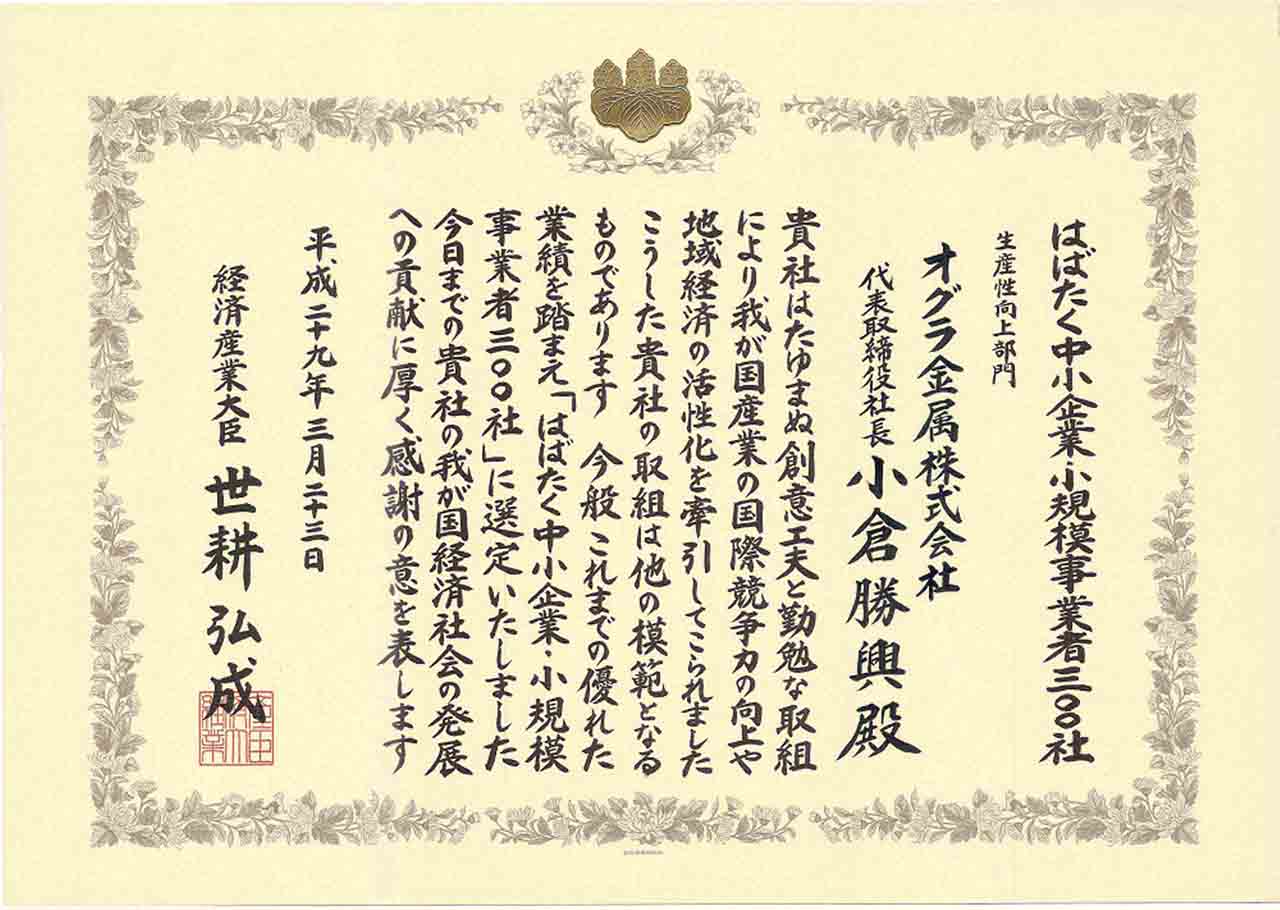 はばたく中小企業・小規模事業者三〇〇社
生産性向上部門
オグラ金属株式会社
代表取締役社長 小倉勝興殿
貴社はたゆまぬ創意工夫と勤勉な取組
により我が国産業の国際競争力の向上や
地域経済の活性化を牽引してこられました
こうした貴社の取組は他の模範となる
ものであります 今般 これまでの優れた
業績を踏まえ「はばたく中小企業・小規模
事業者三〇〇社」に選定いたしました
今日までの貴社の我が国経済社会の発展
への貢献に厚く感謝の意を表します
平成二十九年三月二十三日
経済産業大臣 世耕弘成